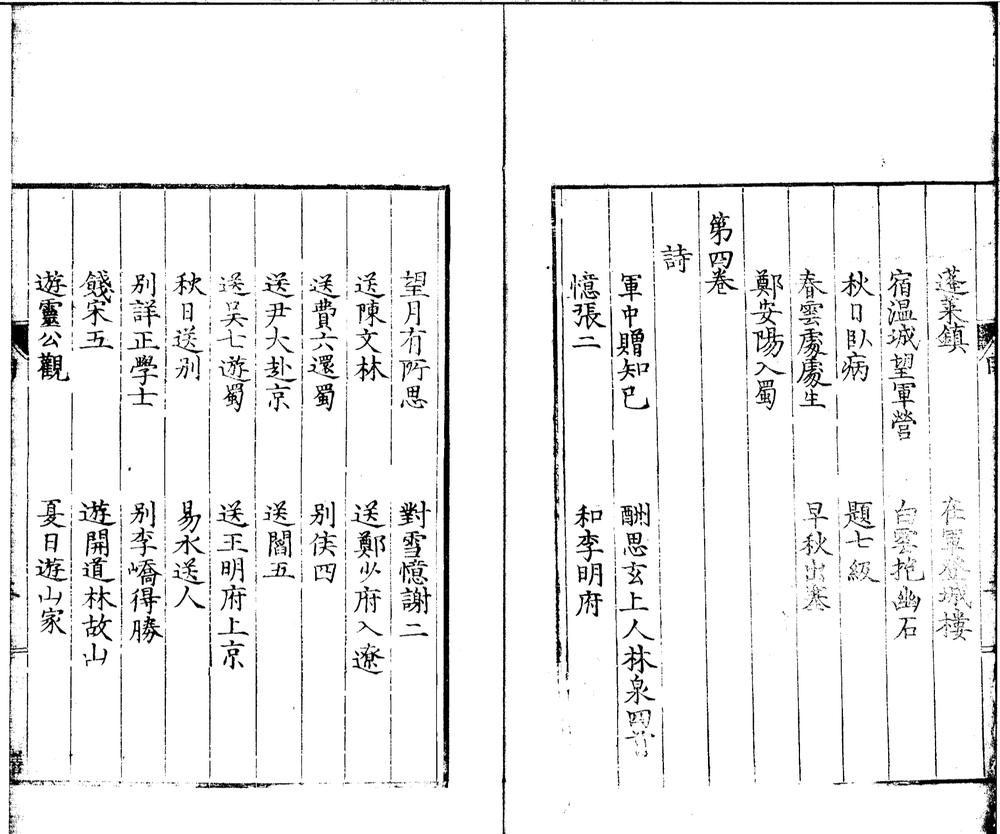 蓬萊鎮　在軍登城樓
宿温城望軍營　白雲抱幽石
秋日臥病　題七級
春雲處處生　早秋出塞
鄭安陽入蜀
第四卷
詩
軍中贈知已　酬思玄上人林泉四首
憶張二　和李明府
望月有所思　對雪憶謝二
送陳文林　送鄭少府入遼
送費六還蜀　别侠四
送尹大赴京　送閻五
送吴七遊蜀　送王明府上京
秋日送别　易水送人
别詳正學士　别李嶠得勝
餞宋五　遊開道林故山
遊靈公觀　夏日遊山家